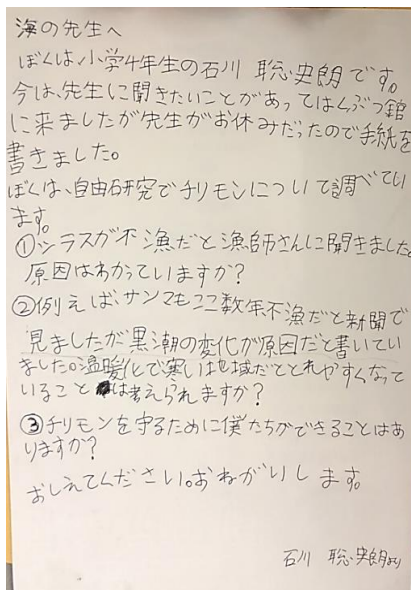 海の先生へ
ぼくは、小学4年生の石川 聡史朗です。
今は、先生に聞きたいことがあってはくぶつ館
に来ましたが先生がお休みだったので手紙を
書きました。
ぼくは、自由研究でチリモンについて調べてい
ます。
①シラスが不漁だと漁師さんに聞きました。
原因はわかっていますか?
②例えば、サンマもここ数年、不漁だと新聞で
見ましたが黒潮の変化が原因だと書いてい
ました。温暖化で寒い地域だととれやすくなって
いること は考えられますか?
③チリモンを守るために僕たちができることはあ
りますか?
おしえてください。おねがいします。
石川 聡史朗より